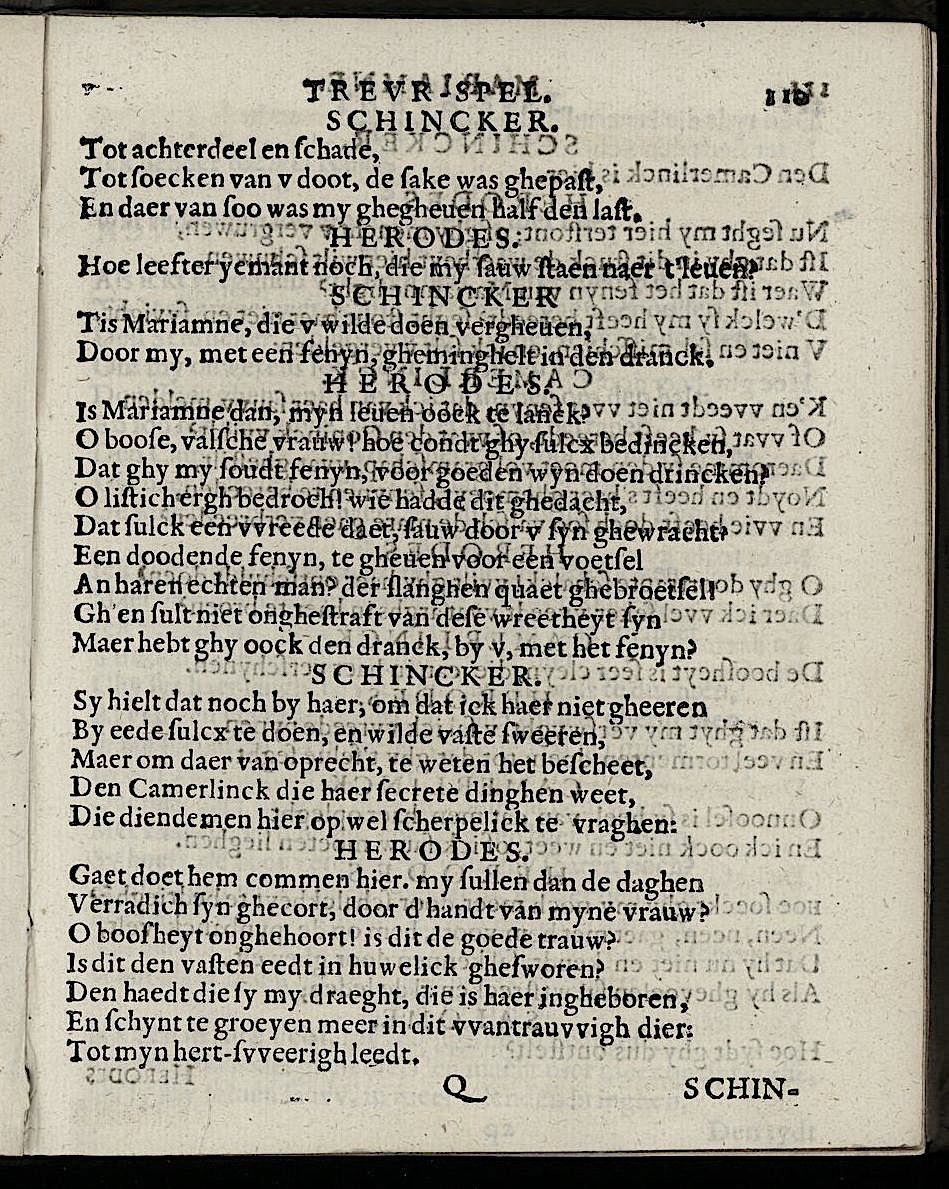 TREVR SPEL.
SCHINCKER.
Tot achterdeel en schade,
Tot soecken van v doot, de sake was ghepast,
En daer van soo was my ghegheuen half den last.
HERODES.
Hoe leefter yemant noch, die my sauw staen naer t'leuen?
SCHINCKER
Tis Mariamne, die v wilde doen vergheuen,
Door my, met een fenyn, gheminghelt in den dranck.
HERODES.
Is Mariamne dan, myn leuen oock te lanck?
O boose, valsche vrauw! hoe condt ghy sulcx bedincken,
Dat ghy my soudt fenyn, voor goeden wyn doen drincken?
O listich ergh bedroch! wie hadde dit ghedacht,
Dat sulck een vvreede daet, sauw door v syn ghewracht?
Een doodende fenyn, te gheuen voor een voetsel
An haren echten man? der slanghen quaet ghebroetsel!
Gh'en sult niet onghestraft van dese wreetheyt syn
Maer hebt ghy oock den dranck, by v, met het fenyn?
SCHINCKER.
Sy hielt dat noch by haer, om dat ick haer niet gheeren
By eede sulcx te doen, en wilde vaste sweeren,
Maer om daer van oprecht, te weten het bescheet,
Den Camerlinck die haer secrete dinghen weet,
Die diende men hier op wel scherpelick te vraghen:
HERODES.
Gaet doet hem commen hier. my sullen dan de daghen
Verradich syn ghecort, door d'handt van myne vrauw?
O boosheyt onghehoort! is dit de goede trauw?
Is dit den vasten eedt in huwelick ghesworen?
Den haedt die sy my draeght, die is haer jngheboren,
En schynt te groeyen meer in dit vvantrauvvigh dier:
Tot myn hert-svveerigh leedt.
Q SCHIN-